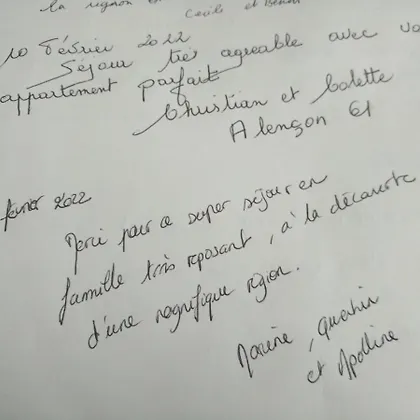 la région
Cécile et Benoit
10 Février 2022
Séjour très agréable avec vo
appartement parfait
Christian et Colette
Alençon 61
février 2022
Merci pour ce super séjour en
famille très reposant, à la découverte
d'une magnifique région.
Marine, Quentin
et Apolline